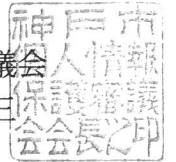 神戸市
個人情報
保護審議
会会長之印
議会
三